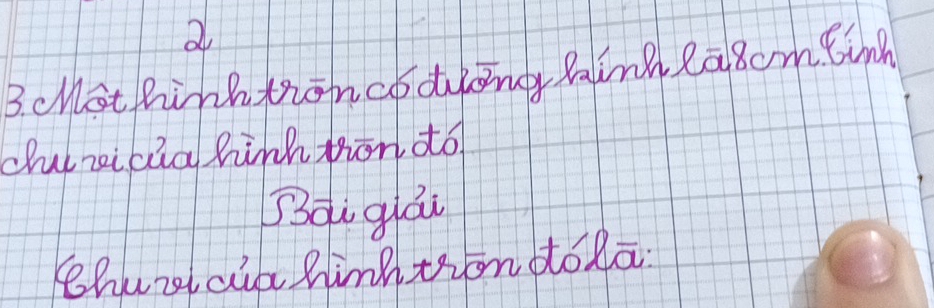 2
3. Một hình tròn có đường kính là 8cm. Tính
chu vi của hình tròn đó.
Bài giải
Chu vi của hình tròn đó là: